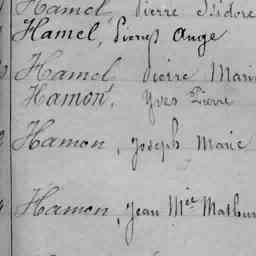 Hamel, Pierre Isidore
Hamel, Pierre Ange
Hamel Pierre Marie
Hamont, Yves Pierre
Hamon, Joseph Marie
Hamon, Jean Mie Mathur